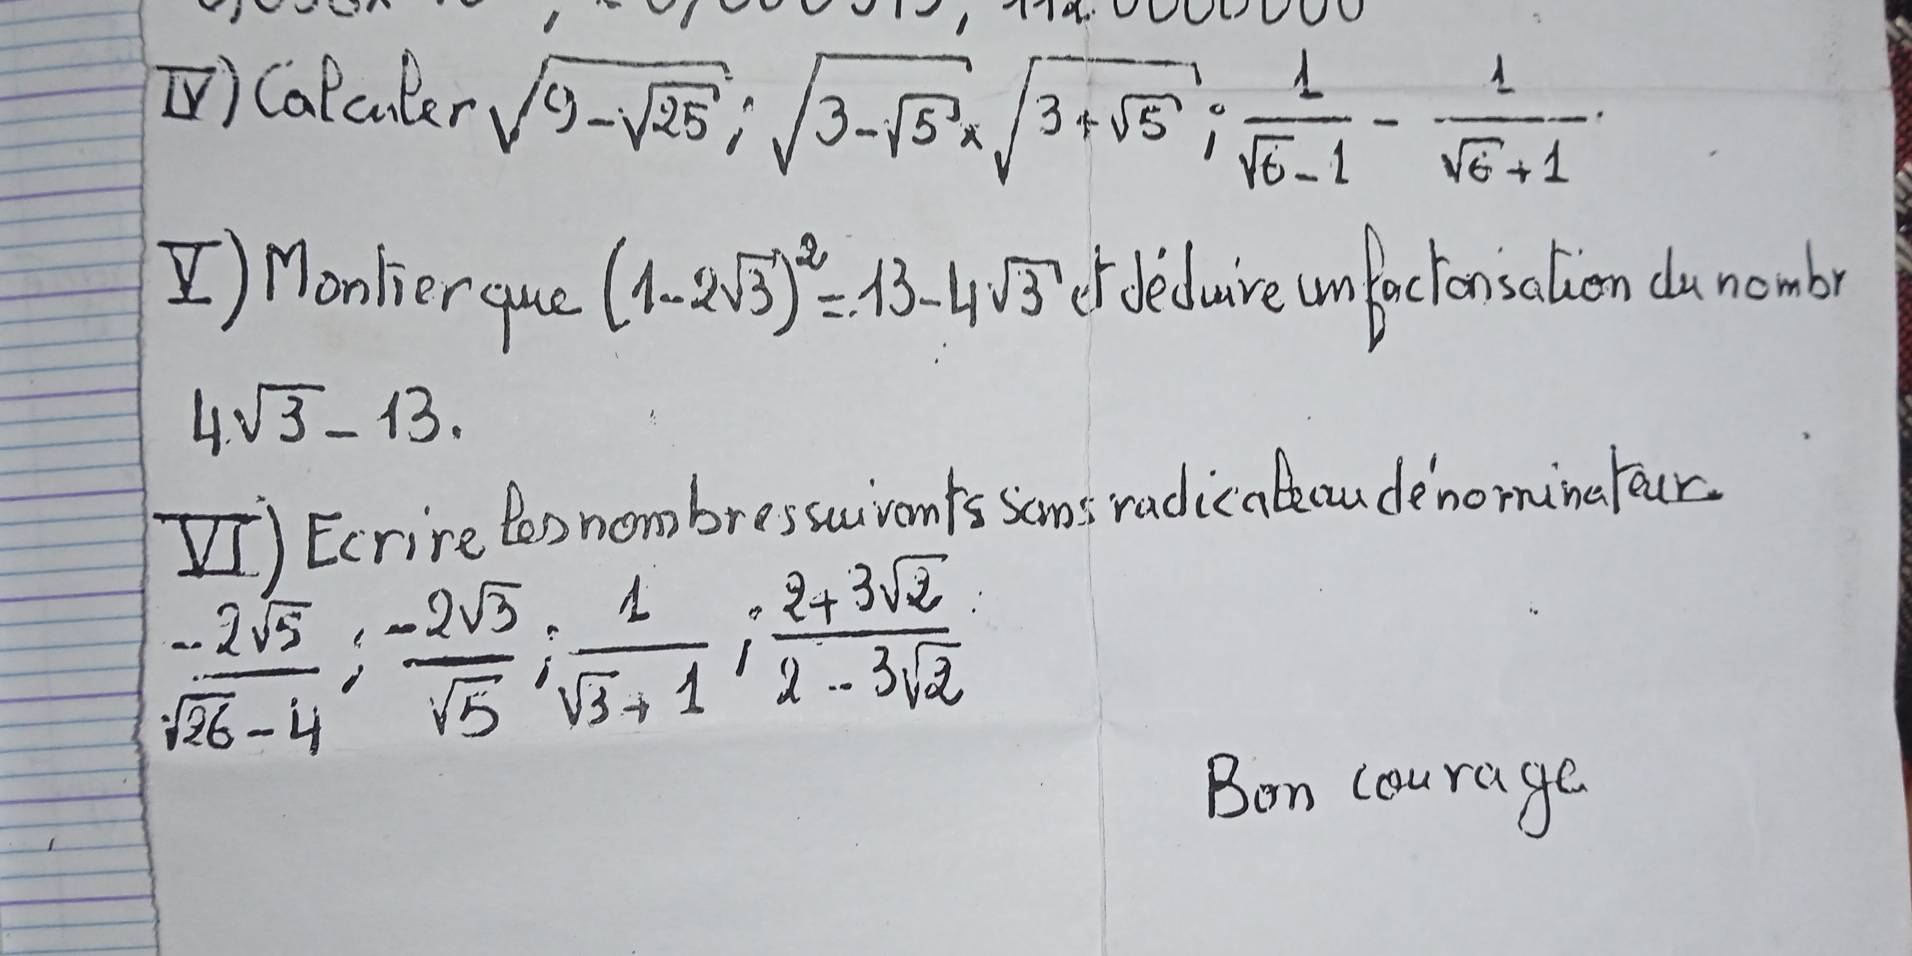 IV) Calculer √(9-√25) ; √(3-√5) × √(3+√5) ; 1/(√6-1) - 1/(√6+1).
V) Montrer que (1-2√3)² = 13-4√3 et déduire un factorisation du nombr
4√3 - 13.
VI) Ecrire les nombres suivants sans radicale au dénominateur.
-2√5/(√26-4) ; -2√3/√5 ; 1/(√3+1) ; (2+3√2)/(2-3√2)
Bon courage